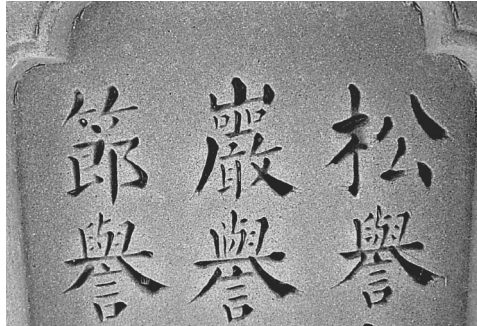 松譽
巖譽
節譽